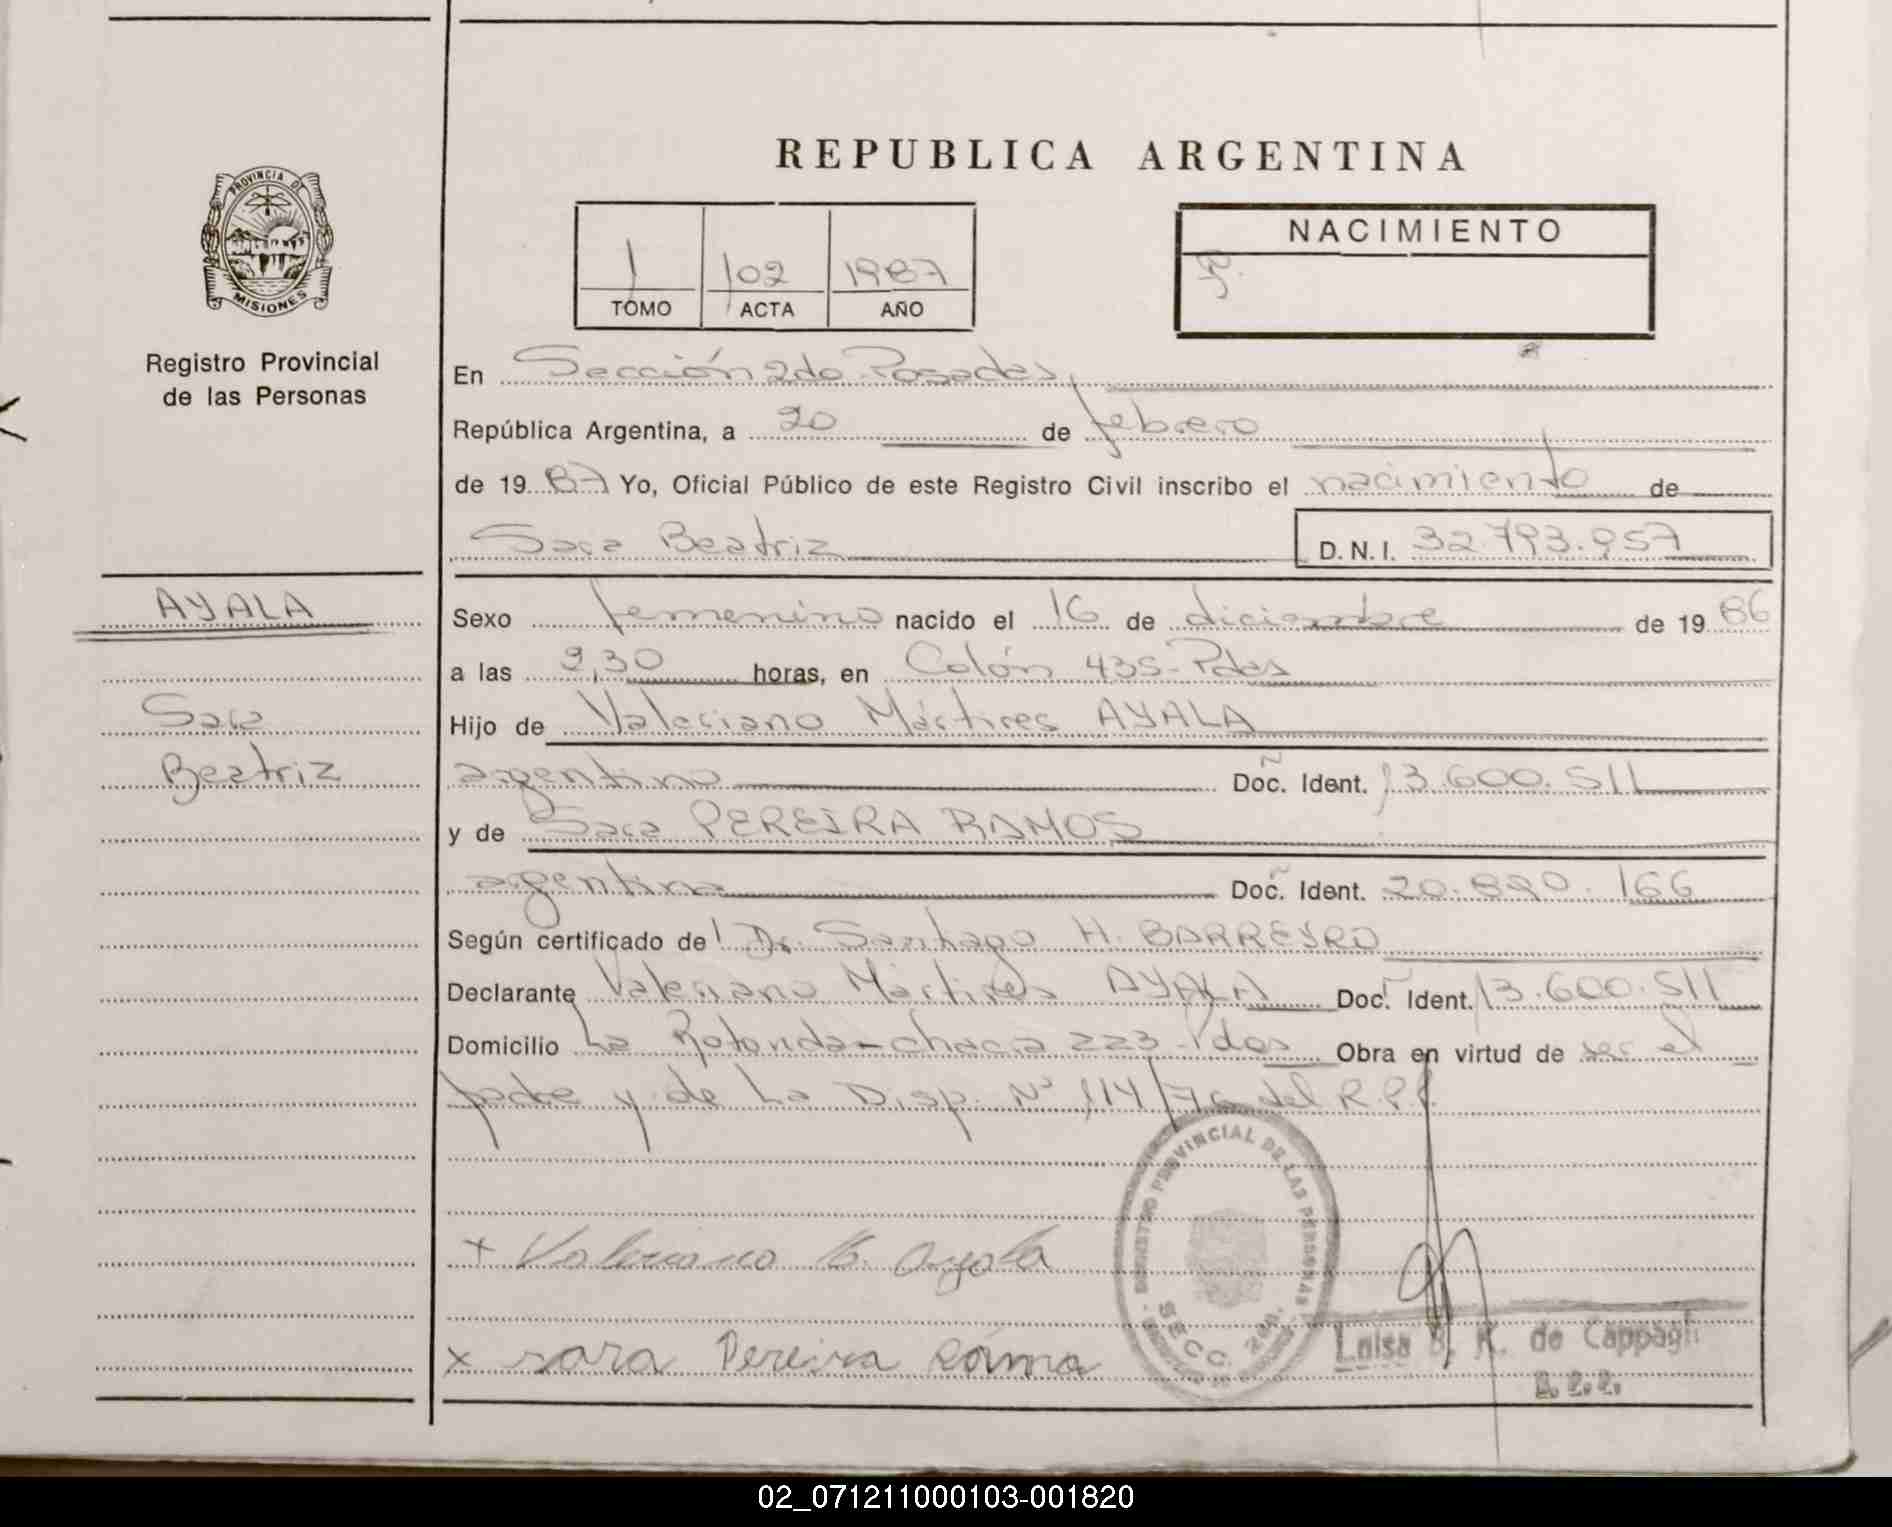 REPUBLICA ARGENTINA
PROVINCIA DE
MISIONES
Registro Provincial
de las Personas
1 102 1987
TOMO ACTA AÑO
NACIMIENTO
En Sección 2do Posadas,
República Argentina, a 20 de febrero
de 1987 Yo, Oficial Público de este Registro Civil inscribo el nacimiento de
Sara Beatriz D.N.I. 32793.957
AYALA
Sara
Beatriz
Sexo femenino nacido el 16 de diciembre de 1986
a las 9,30 horas, en Colón 435-Pdas
Hijo de Valeriano Mártires AYALA
argentino Doc. Ident. 13.600.511
y de Sara PEREIRA RAMOS
argentina Doc. Ident. 20.890.166
Según certificado del Dr. Santiago H. BARREYRO
Declarante Valeriano Mártires AYALA Doc. Ident. 13.600.511
Domicilio La Rotonda-chacra 223-Pdas Obra en virtud de ser el
padre y de La Disp. Nº 114/76 del R.P.P.
REGISTRO PROVINCIAL DE LAS PERSONAS
SECC. 2da.
x Valeriano M. Ayala
x sara Pereira Ramo
Luisa K. de Cappagli
02_071211000103-001820